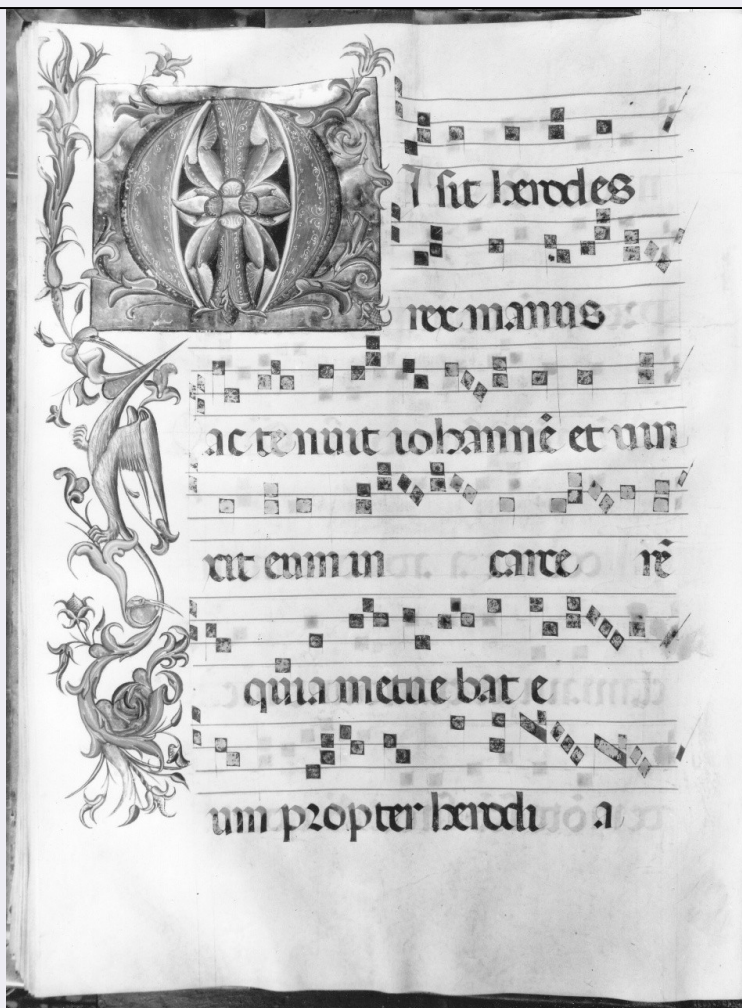 MI sit herodes
rex manus
ac tenuit iohannē et uin
xit eum in carce rē
quia metue bat e
um propter herodi a